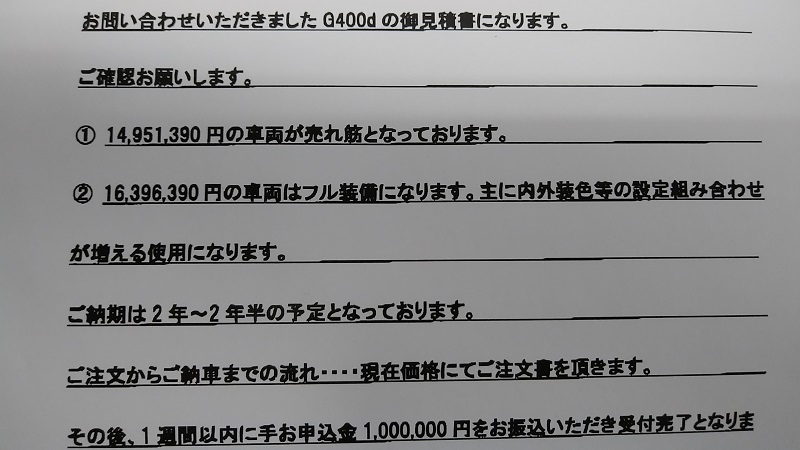 お問い合わせいただきましたG400dの御見積書になります。
ご確認お願いします。
① 14,951,390円の車両が売れ筋となっております。
② 16,396,390円の車両はフル装備になります。主に内外装色等の設定組み合わせ
が増える使用になります。
ご納期は2年～2年半の予定となっております。
ご注文からご納車までの流れ････現在価格にてご注文書を頂きます。
その後、1週間以内に手お申込金1,000,000円をお振込いただき受付完了となりま